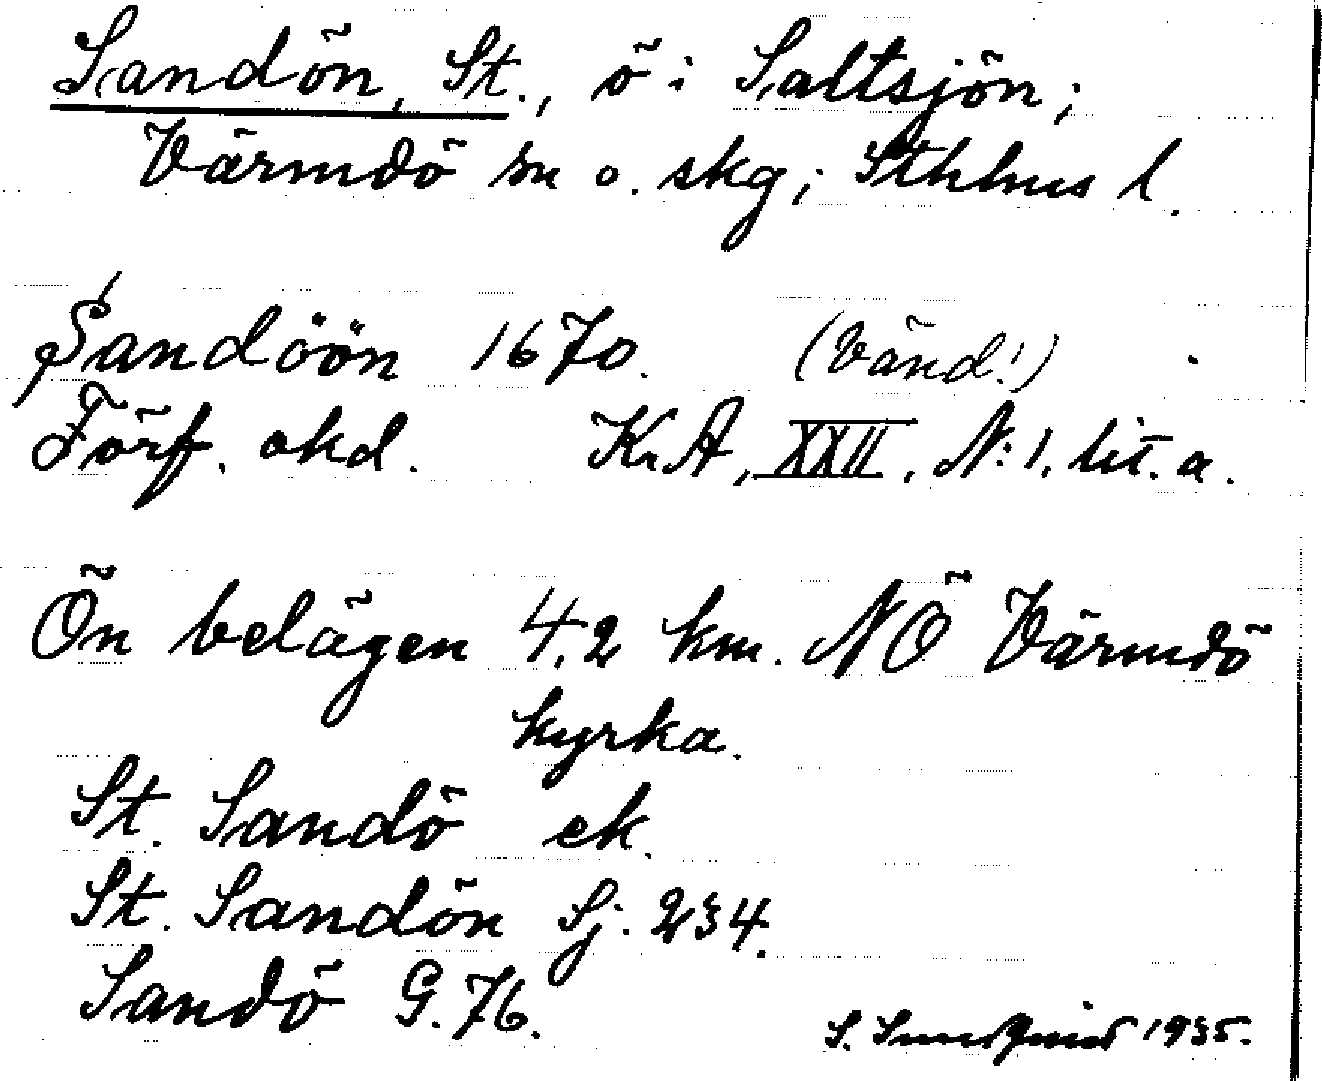 Sandön, St., ö i Saltsjön;
Värmdö sn o. skg; Sthlms l.
Sandöön 1670. (Vänd!)
Förf. okd. KrA, XXII, N:1, lit. a.
Ön belägen 4,2 km. NÖ Värmdö
kyrka.
St. Sandö ek.
St. Sandön Sj. 234.
Sandö G. 76.
S. Sundquist 1935.